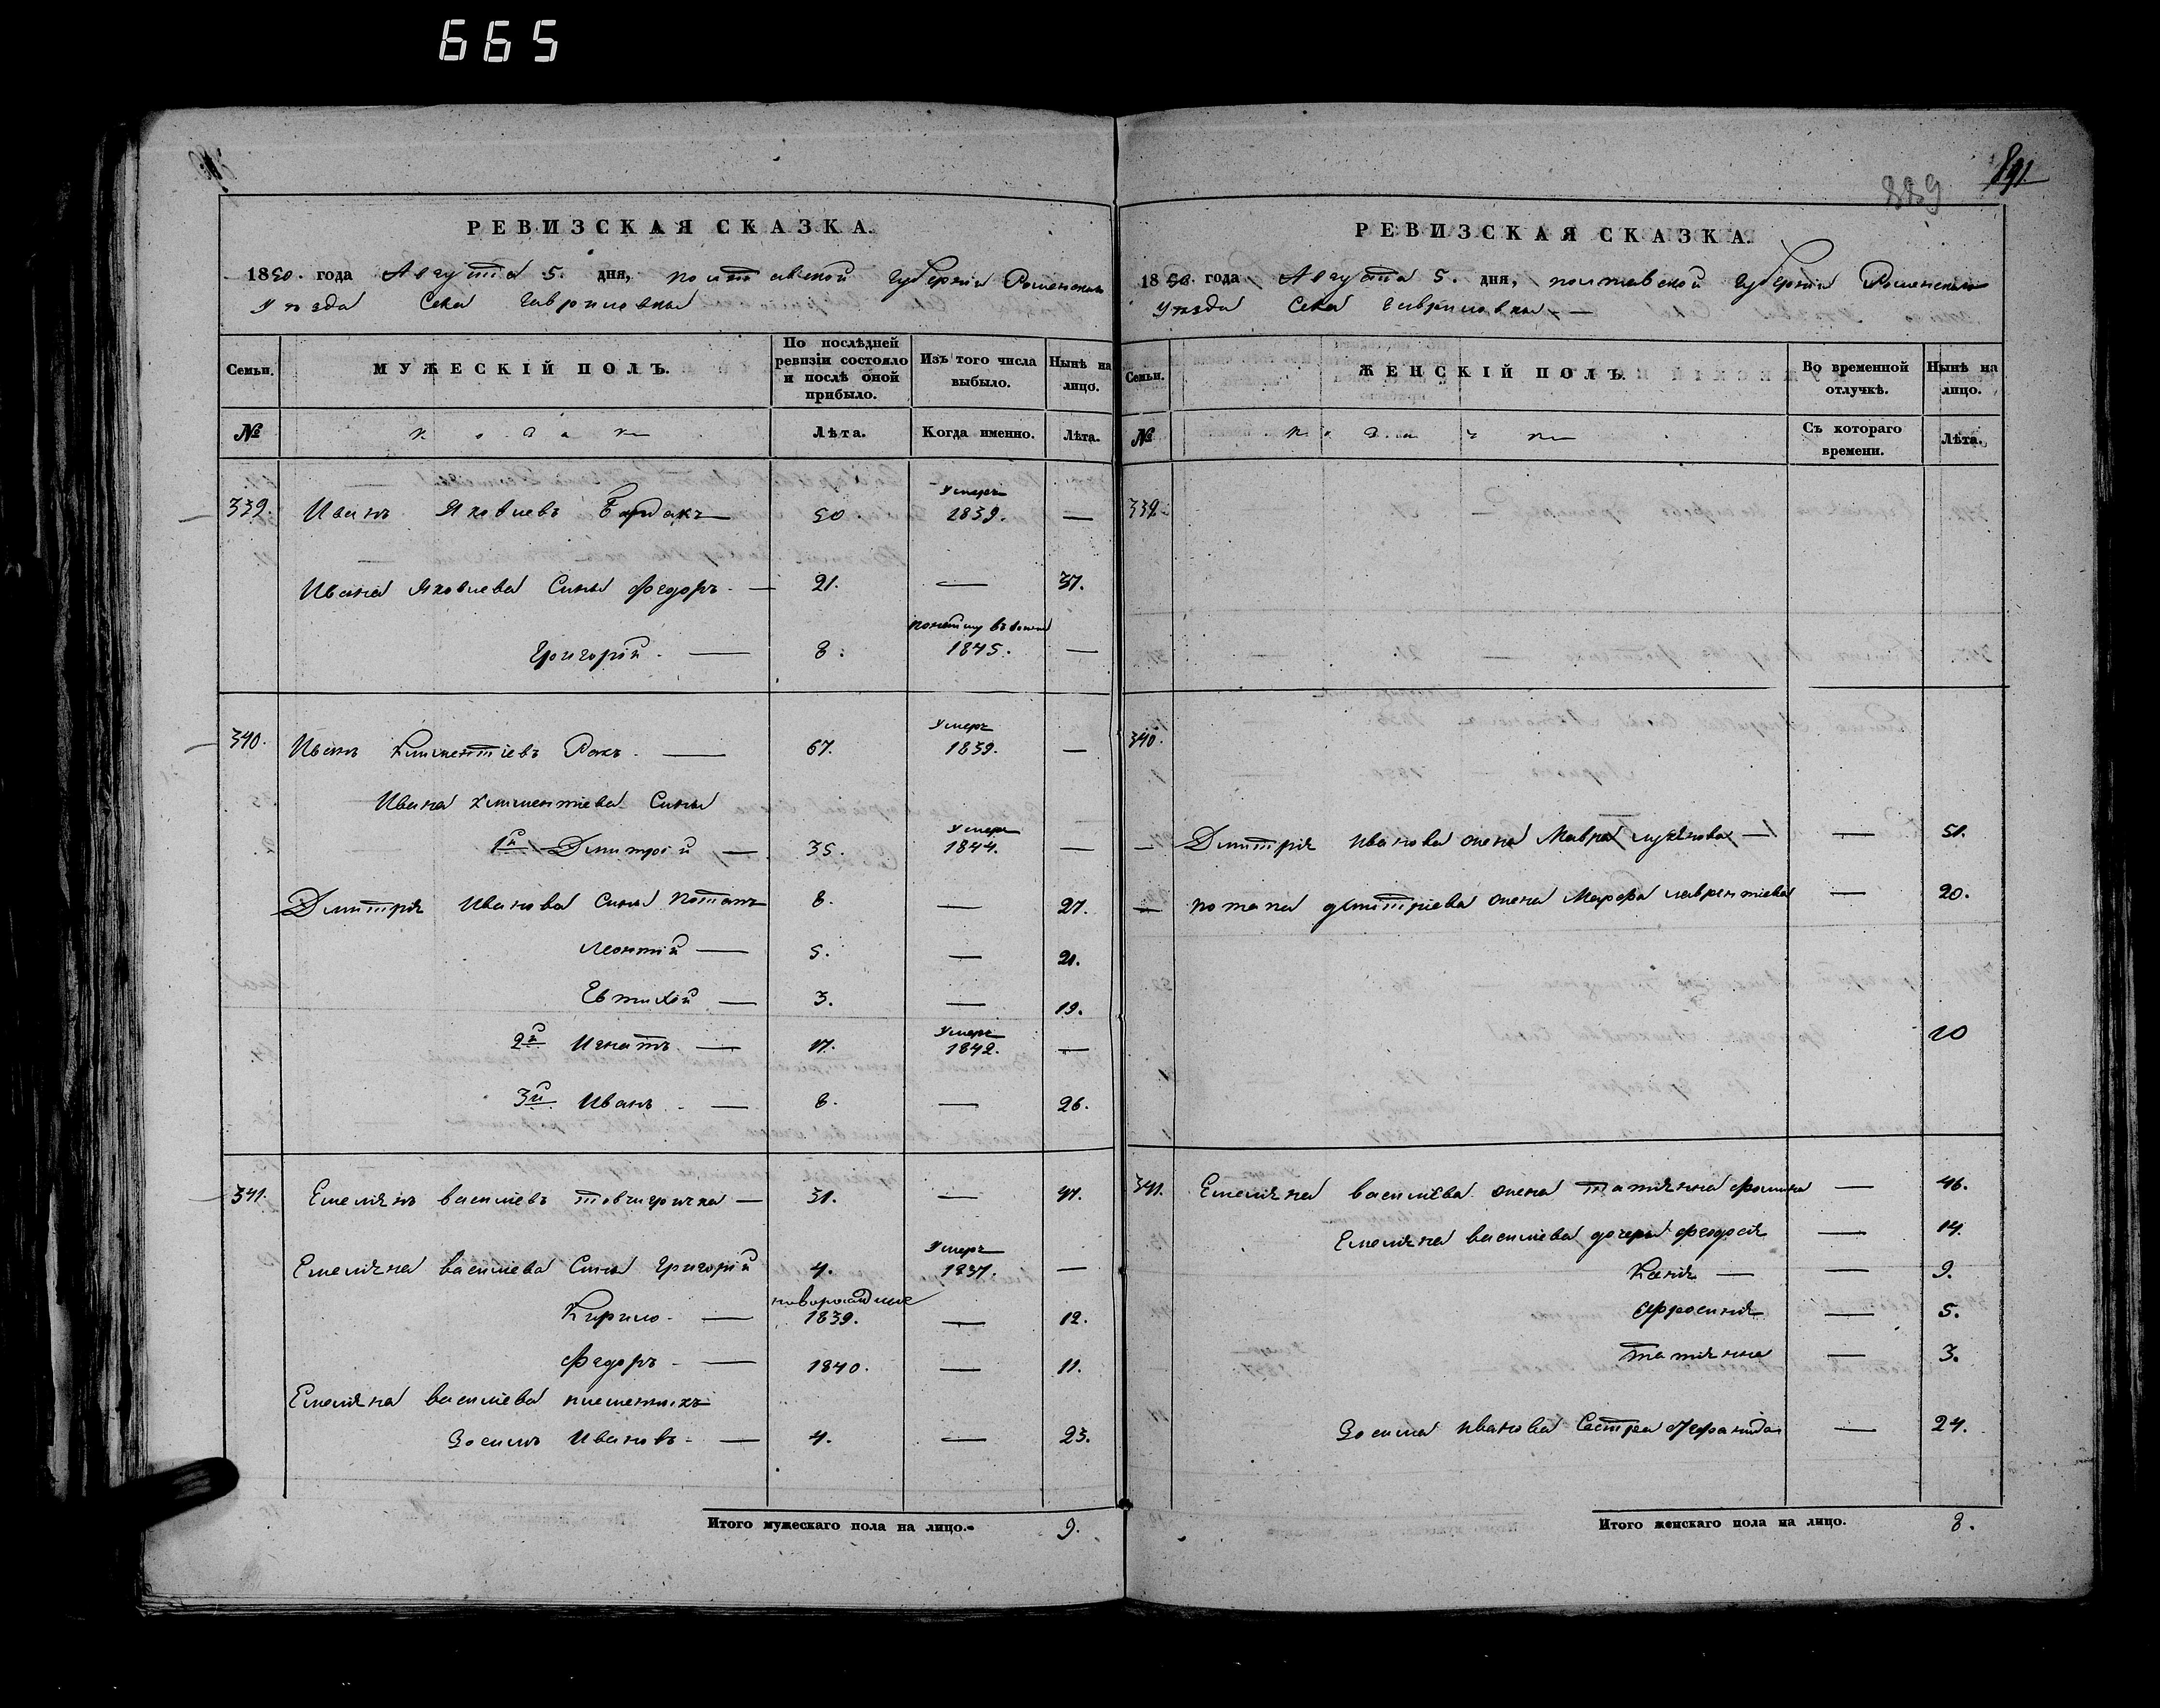 665
РЕВИЗСКАЯ СКАЗКА.
1850. года Августа 5. дня, полтавской губерніи Роменскаго
уѣзда Села Гавриловки
Семьи. МУЖЕСКІЙ ПОЛЪ. По послѣдней ревизіи состояло и послѣ оной прибыло. Изъ того числа выбыло. Нынѣ на лицо.
№ козаки Лѣта. Когда именно. Лѣта.
339. Иванъ Яковлевъ 50. Умеръ 1839. —
Ивана Яковлева Сынъ Федоръ — 21. — 37.
Григорій — 8. 1845. —
340. Иванъ Климентіевъ Рокъ — 67. Умеръ 1839. —
Ивана Климентіева Сыны
1й Дмитрій — 35. Умеръ 1844. —
Дмитрія Иванова Сыны Потапъ 8. — 27.
Леонтій — 5. — 21.
Евтихій — 3. — 19.
2й Игнатъ — 17. Умеръ 1842. —
3й Иванъ — 8. — 26.
341. Емелянъ василіевъ — 31. — 47.
Емеляна василіева Сыны Григорій 4. Умеръ 1837. —
Кирило — новорожденые 1839. — 12.
Федоръ — 1840. — 11.
Емеляна василіева племенникъ
Зосимъ Ивановъ — 4. — 23.
Итого мужескаго пола на лицо. 9.
891
889
РЕВИЗСКАЯ СКАЗКА.
1850 года Августа 5. дня, полтавской губерніи Роменскаго
уѣзда Села Гавриловки —
Семьи. ЖЕНСКІЙ ПОЛЪ. Во временной отлучкѣ. Нынѣ на лицо.
№ козачки Съ котораго времени. Лѣта.
339.
340.
— Дмитрія Иванова жена Мавра — — 51.
— потапа дмитріева жена Марфа лаврентіева — 20.
20
341. Емеляна василіева жена татянна фомина — 46.
Емеляна василіева дочери феодосія — 14.
Ксенія — — 9.
Ефросинія — 5.
татянна — 3.
Зосима Иванова Сестра — 24.
Итого женскаго пола на лицо. 8.